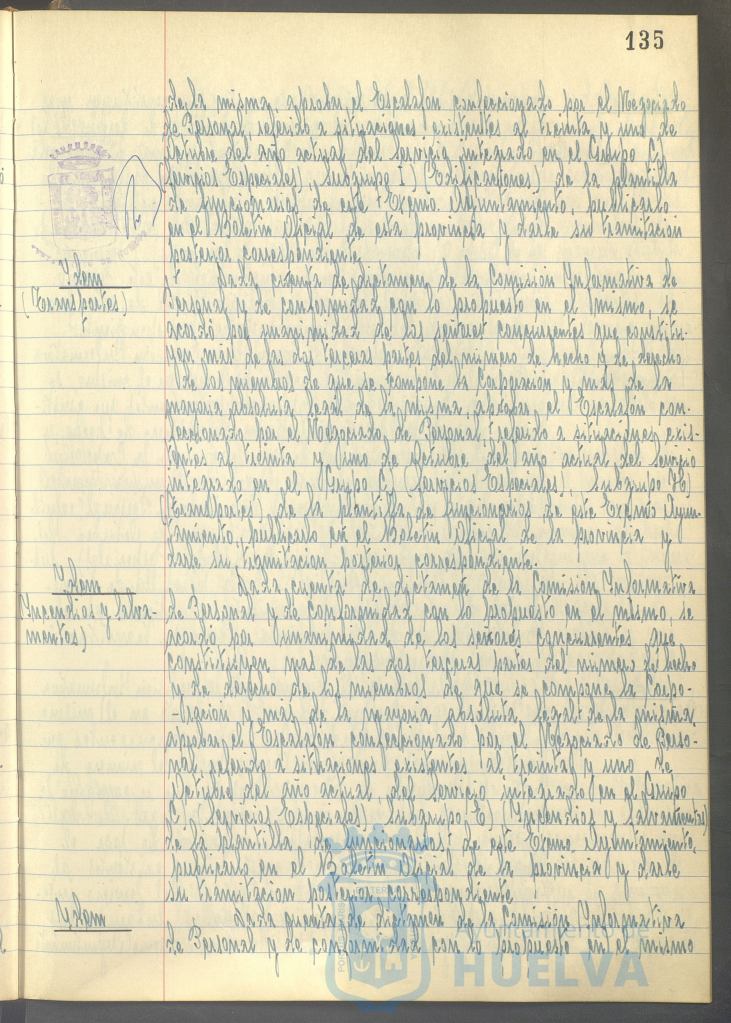 135
de la misma, aprobar el Escalafon confeccionado por el Negociado
de Personal, referido a situaciones existentes al treinta y uno de
Octubre del año actual del Servicio integrado en el Grupo C)
(Servicios Especiales) Subgrupo I) (Edificaciones) de la plantilla
de funcionarios de este Excmo Ayuntamiento, publicarlo
en el Boletin Oficial de esta provincia y darle su tramitacion
posterior correspondiente.
Ydem
(Transportes)
Dada cuenta de dictamen de la Comisión Informativa de
Personal y de conformidad con lo propuesto en el mismo, se
acordó por unanimidad de los señores concurrentes que constitu-
yen más de las dos terceras partes del numero de hecho y de derecho
de los miembros de que se compone la Corporación y más de la
mayoria absoluta legal de la misma, aprobar el Escalafón con-
feccionado por el Negociado de Personal, referido a situaciones exis-
tentes al treinta y uno de Octubre del año actual del Servicio
integrado en el Grupo C) (Servicios Especiales), Subgrupo H)
(Transportes) de la plantilla de funcionarios de este Excmo Ayun-
tamiento, publicarlo en el Boletin Oficial de la provincia y
darle su tramitacion posterior correspondiente.
Ydem
(Yncendios y Salva-
mentos)
Dada cuenta de dictamen de la Comisión Informativa
de Personal y de conformidad con lo propuesto en el mismo, se
acordó por unanimidad de los señores concurrentes que
constituyen mas de las dos terceras partes del numero de hecho
y de derecho de los miembros de que se compone la Corpo-
-ración y más de la mayoria absoluta legal de la misma
aprobar el Escalafón confeccionado por el Negociado de Perso-
nal referido a situaciones existentes al treinta y uno de
Octubre del año actual, del servicio integrado en el Grupo
C) (Servicios Especiales) Subgrupo E) (Yncendios y Salvamentos)
de la plantilla de funcionarios de este Excmo Ayuntamiento,
publicarlo en el Boletin Oficial de la provincia y darle
su tramitacion posterior correspondiente
Ydem
Dada cuenta de dictamen de la Comisión Informativa
de Personal y de conformidad con lo propuesto en el mismo
Ayuntamiento de
HUELVA